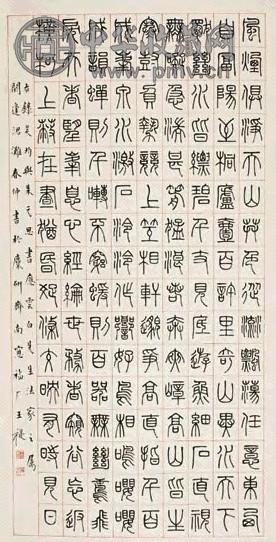 風煙俱淨天山共色從流飄蕩任意東西
自富陽至桐廬一百許里奇山異水天下
獨絕水皆縹碧千丈見底游魚細石直視
無礙急湍甚箭猛浪若奔夾岸高山皆生
寒樹負勢競上互相軒邈爭高直指千百
成峰泉水激石泠泠作響好鳥相鳴嚶嚶
成韻蟬則千轉不窮猿則百叫無絕鳶飛
戾天者望峰息心經綸世務者窺谷忘返
橫柯上蔽在晝猶昏疏條交映有時見日
右錄吳均與朱元思書應雲白先生法家之屬
閼逢涒灘春仲書於麋研齋南窗福厂王禔
中华收藏网